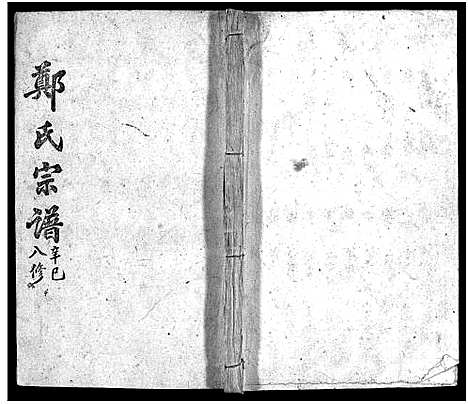 鄭氏宗譜
辛巳
八修